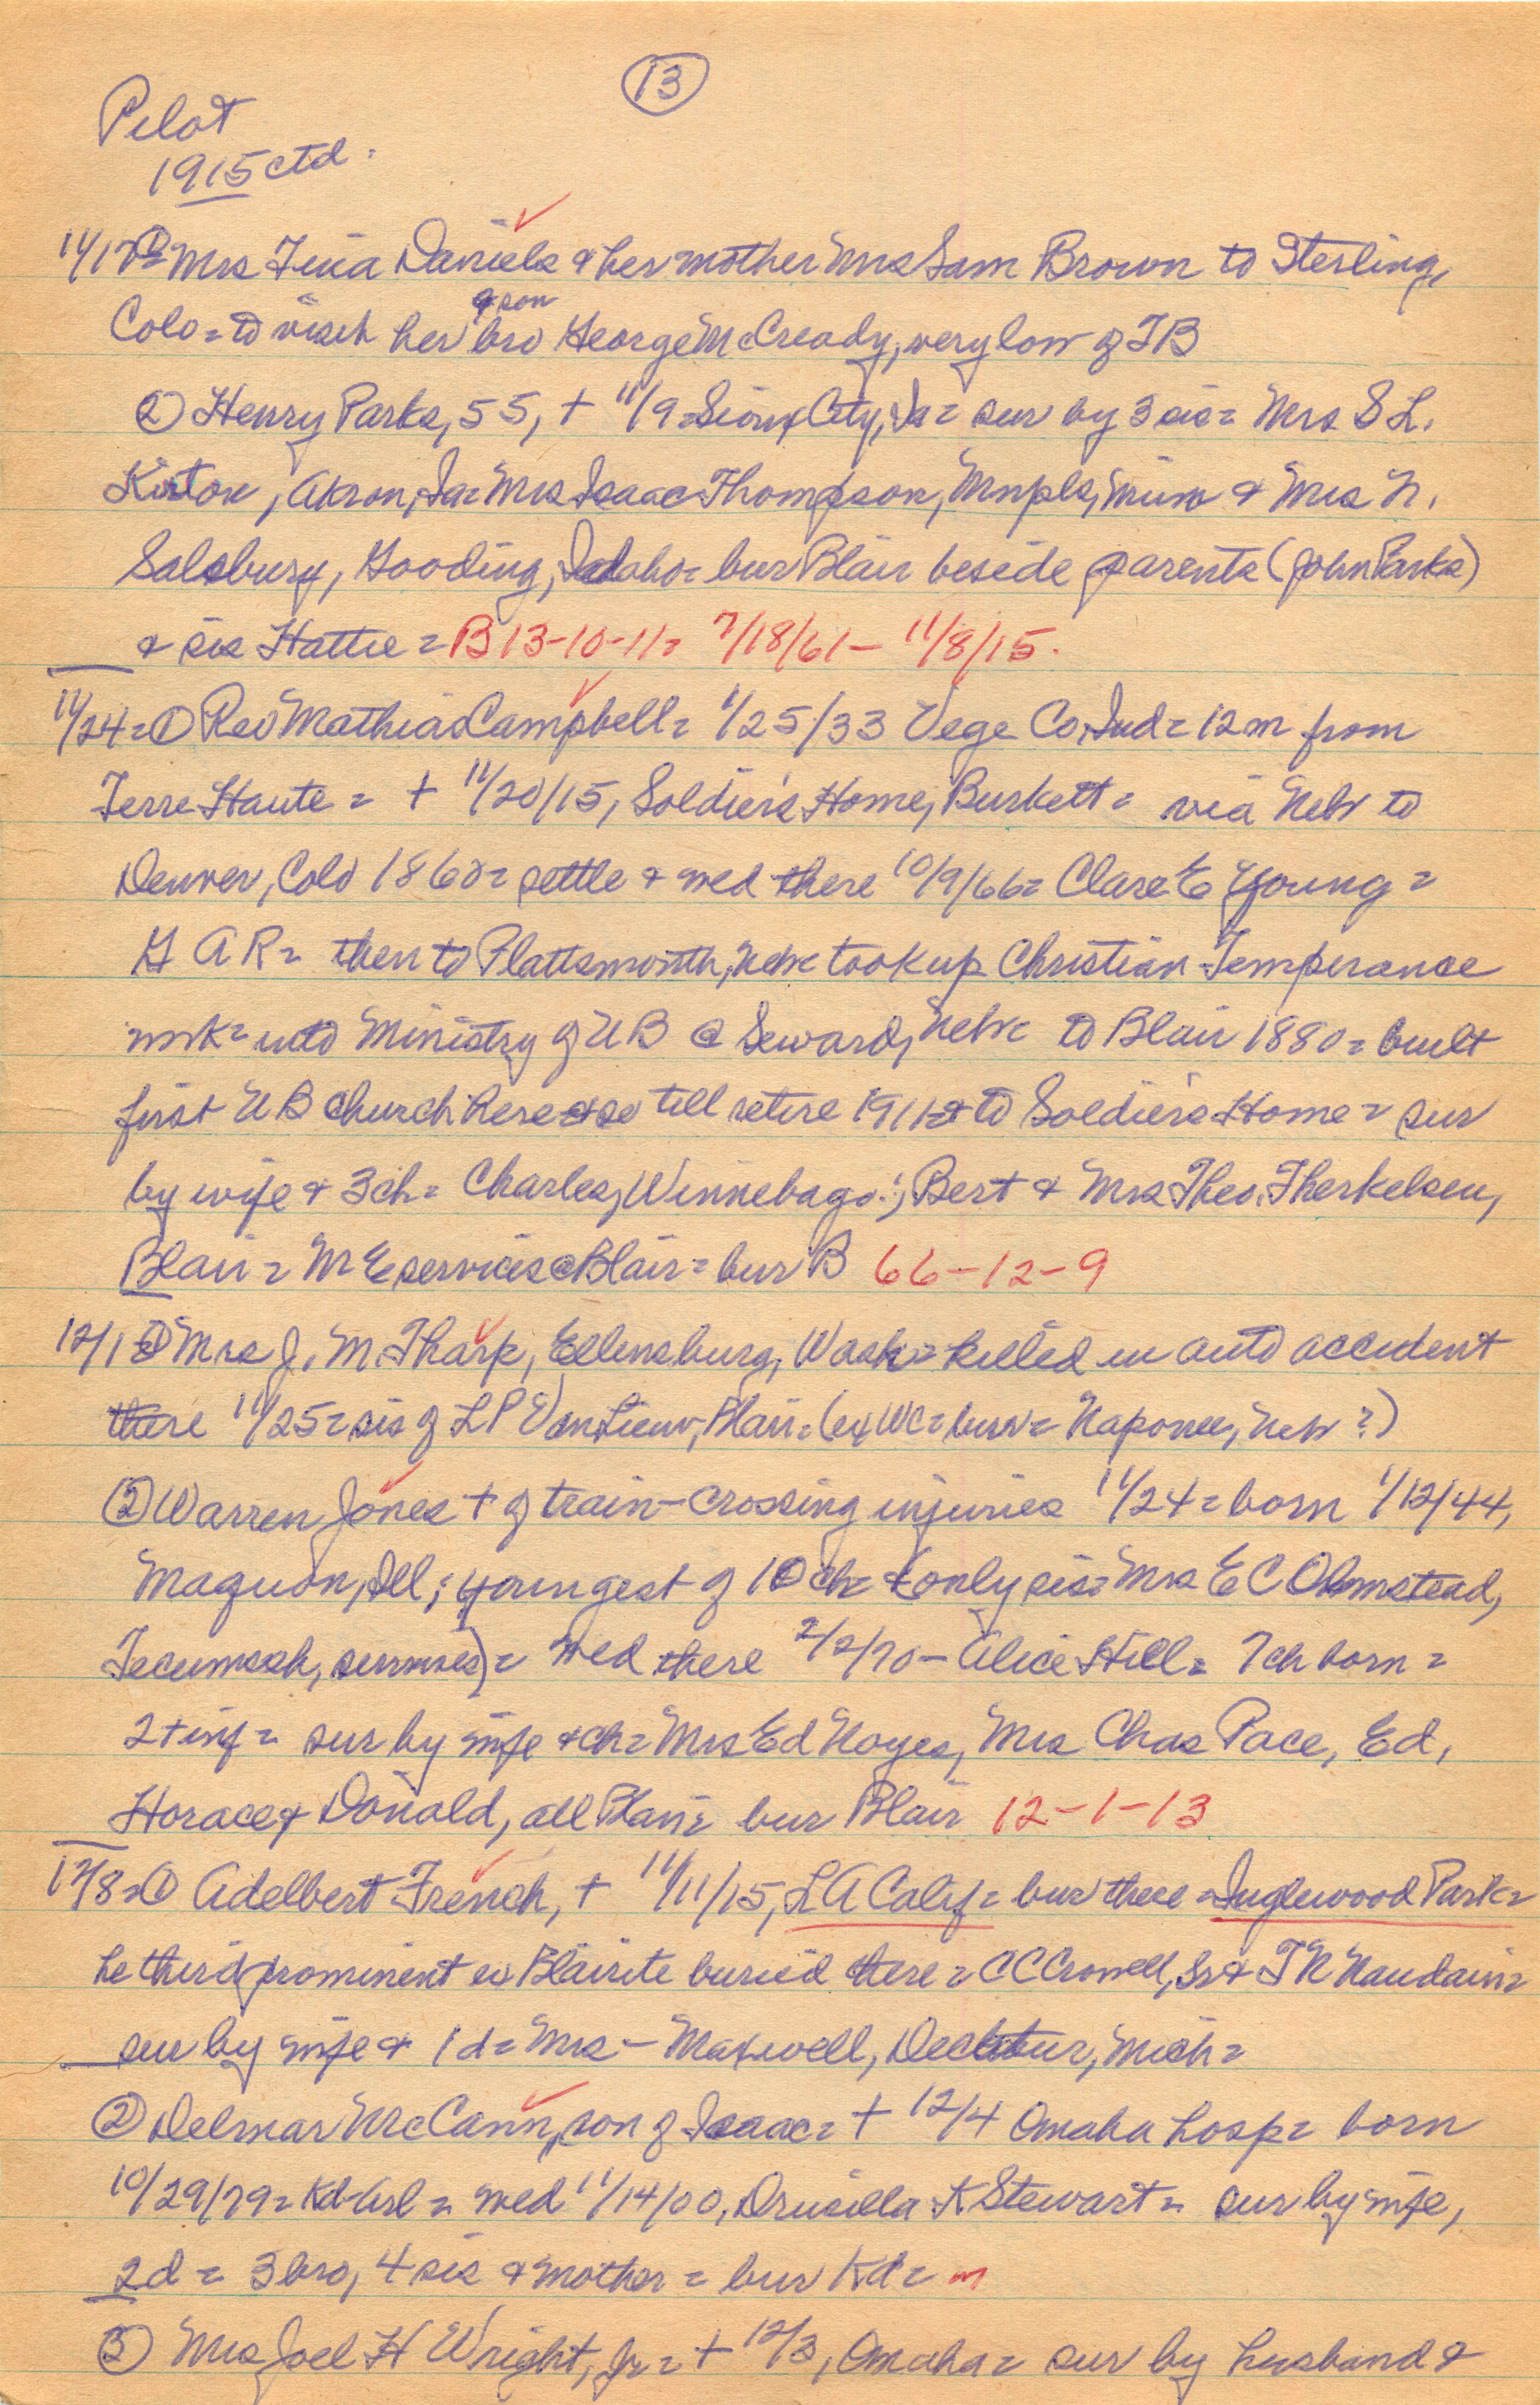 13
Pilot
1915 ctd.
11/17=① Mrs Tena Daniels & her mother Mrs Sam Brown to Sterling,
& son
Colo= to visit her bro George McCready, very low of TB
② Henry Parks, 55, + 11/9=Sioux City, Ia= sur by 3 sis= Mrs S L.
Akron, Ia= Mrs Isaac Thompson, Mnpls, Minn & Mrs N.
Salsbury, Gooding, Idaho= bur Blair beside parents (John Parks)
& sis Hattie = B 13-10-11= 7/18/61 - 11/8/15.
11/24=① Rev Mathias Campbell= 1/25/33 Vego Co, Ind= 12m from
Terre Haute = + 11/20/15, Soldier's Home, Burkett= via Nebr to
Denver, Colo 1860= settle & wed there 10/9/66= Clare E Young=
G A R= then to Plattsmouth, Nebr= took up Christian Temperance
work= into Ministry of U B @ Seward, Nebr= to Blair 1880= built
first U B church here & so till retire 1911= to Soldier's Home= sur
by wife & 3 ch= Charles, Winnebago; Bert & Mrs Theo. Therkelsen,
Blair= M E services @ Blair= bur B 66-12-9
12/1=① Mrs J. M. Tharp, Ellensburg, Wash= killed in auto accident
there 11/25= sis of L P VanLieuw, Blair= (ex WC= bur= Naponee, Nebr ?)
② Warren Jones + of train-crossing injuries 11/24= born 1/12/44,
Maquon, Ill; youngest of 10 ch (only sis= Mrs E C Olmstead,
Tecumseh, survives)= wed there 2/2/70 - Alice Hill= 7 ch born=
2 + inf= sur by wife & ch= Mrs Ed Noyes, Mrs Chas Pace, Ed,
Horace & Donald, all Blair= bur Blair 12-1-13
12/8=① Adelbert French, + 11/11/15, L A Calif= bur there=Inglewood Park=
he third prominent ex Blairite buried there= C C Crowell, Sr & T N Naudain=
sur by wife & 1 d= Mrs - Maxwell, Decatur, Mich=
② Delmar McCann, son of Isaac= + 12/4 Omaha hosp= born
10/29/79= Kd-Arl= wed 11/14/00, Drusilla K Stewart= sur by wife,
2 d= 3 bro, 4 sis & mother= bur Kd= m
③ Mrs Joel H Wright, Jr= + 12/3, Omaha= sur by husband &